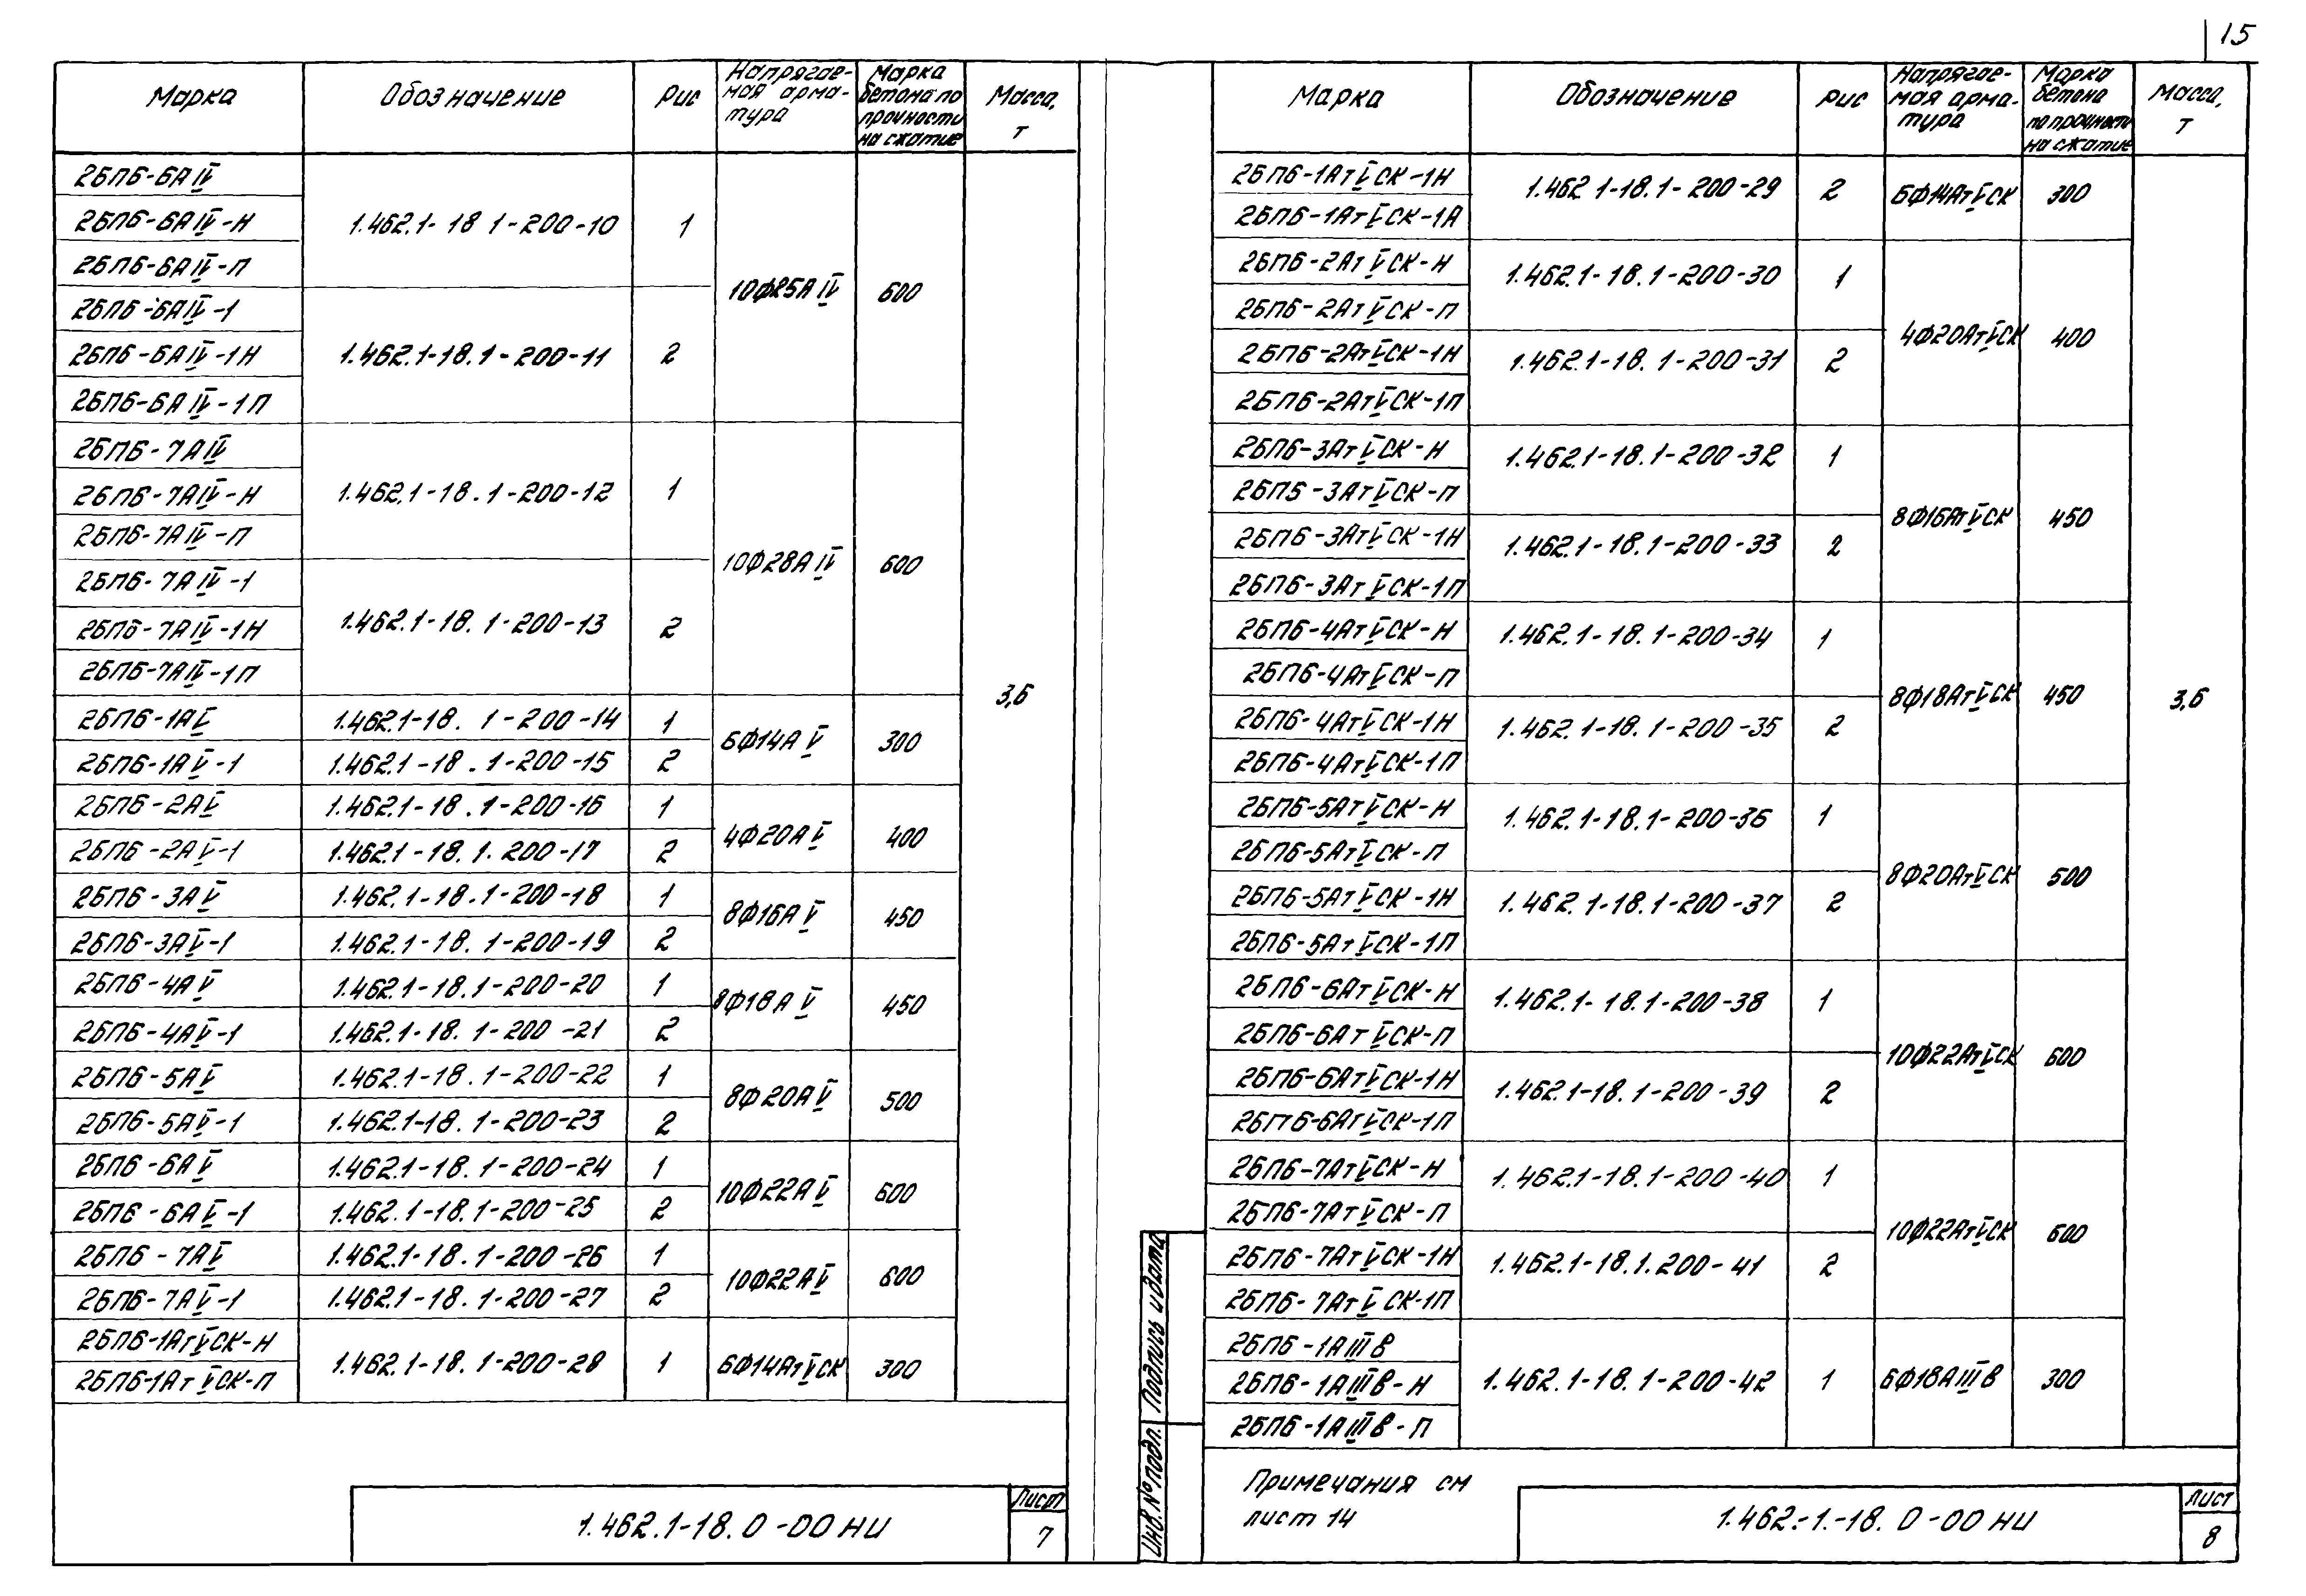 15
Марка
Обозначение
Рис
Напрягае-
мая арма-
тура
Марка
бетона по
прочности
на сжатие
Масса,
т
2БП6-6АIV
2БП6-6АIV-Н
2БП6-6АIV-П
1.462.1-18 1-200-10
1
2БП6-6АIV-1
2БП6-6АIV-1Н
2БП6-6АIV-1П
1.462.1-18.1-200-11
2
10Ф25АIV
600
2БП6-7АIV
2БП6-7АIV-Н
2БП6-7АIV-П
1.462.1-18.1-200-12
1
2БП6-7АIV-1
2БП6-7АIV-1Н
2БП6-7АIV-1П
1.462.1-18.1-200-13
2
10Ф28АIV
600
3,6
2БП6-1АV 1.462.1-18. 1-200-14 1
2БП6-1АV-1 1.462.1-18.1-200-15 2
6Ф14АV 300
2БП6-2АV 1.462.1-18.1-200-16 1
2БП6-2АV-1 1.462.1-18.1.200-17 2
4Ф20АV 400
2БП6-3АV 1.462.1-18.1-200-18 1
2БП6-3АV-1 1.462.1-18.1-200-19 2
8Ф16АV 450
2БП6-4АV 1.462.1-18.1-200-20 1
2БП6-4АV-1 1.462.1-18.1-200-21 2
8Ф18АV 450
2БП6-5АV 1.462.1-18.1-200-22 1
2БП6-5АV-1 1.462.1-18.1-200-23 2
8Ф20АV 500
2БП6-6АV 1.462.1-18.1-200-24 1
2БП6-6АV-1 1.462.1-18.1-200-25 2
10Ф22АV 600
2БП6-7АV 1.462.1-18.1-200-26 1
2БП6-7АV-1 1.462.1-18.1-200-27 2
10Ф22АV 600
2БП6-1АтVСК-Н
2БП6-1АтVСК-П
1.462.1-18.1-200-28 1 6Ф14АтVСК 300
1.462.1-18.0-00НИ
Лист
7
Марка
Обозначение
Рис
Напрягае-
мая арма-
тура
Марка
бетона
по прочности
на сжатие
Масса,
Т
2БП6-1АтVСК-1Н
2БП6-1АтVСК-1А
1.462 1-18.1-200-29 2 6Ф14АтVСК 300
2БП6-2АтVСК-Н
2БП6-2АтVСК-П
1.462.1-18.1-200-30 1
2БП6-2АтVСК-1Н
2БП6-2АтVСК-1П
1.462.1-18.1-200-31 2
4Ф20АтVСК 400
2БП6-3АтVСК-Н
2БП6-3АтVСК-П
1.462.1-18.1-200-32 1
2БП6-3АтVСК-1Н
2БП6-3АтVСК-1П
1.462.1-18.1-200-33 2
8Ф16АтVСК 450
2БП6-4АтVСК-Н
2БП6-4АтVСК-П
1.462.1-18.1-200-34 1
2БП6-4АтVСК-1Н
2БП6-4АтVСК-1П
1.462.1-18.1-200-35 2
8Ф18АтVСК 450
3,6
2БП6-5АтVСК-Н
2БП6-5АтVСК-П
1.462.1-18.1-200-36 1
2БП6-5АтVСК-1Н
2БП6-5АтVСК-1П
1.462.1-18.1-200-37 2
8Ф20АтVСК 500
2БП6-6АтVСК-Н
2БП6-6АтVСК-П
1.462.1-18.1-200-38 1
2БП6-6АтVСК-1Н
2БП6-6АтVСК-1П
1.462.1-18.1-200-39 2
10Ф22АтVСК 600
2БП6-7АтVСК-Н
2БП6-7АтVСК-П
1.462.1-18.1-200-40 1
2БП6-7АтVСК-1Н
2БП6-7АтVСК-1П
1.462.1-18.1.200-41 2
10Ф22АтVСК 600
2БП6-1АIIIв
2БП6-1АIIIв-Н
2БП6-1АIIIв-П
1.462.1-18.1-200-42 1 6Ф18АIIIв 300
Примечания см
лист 14
Инв.№подл. Подпись и дата
1.462.-1.-18.0-00НИ
Лист
8